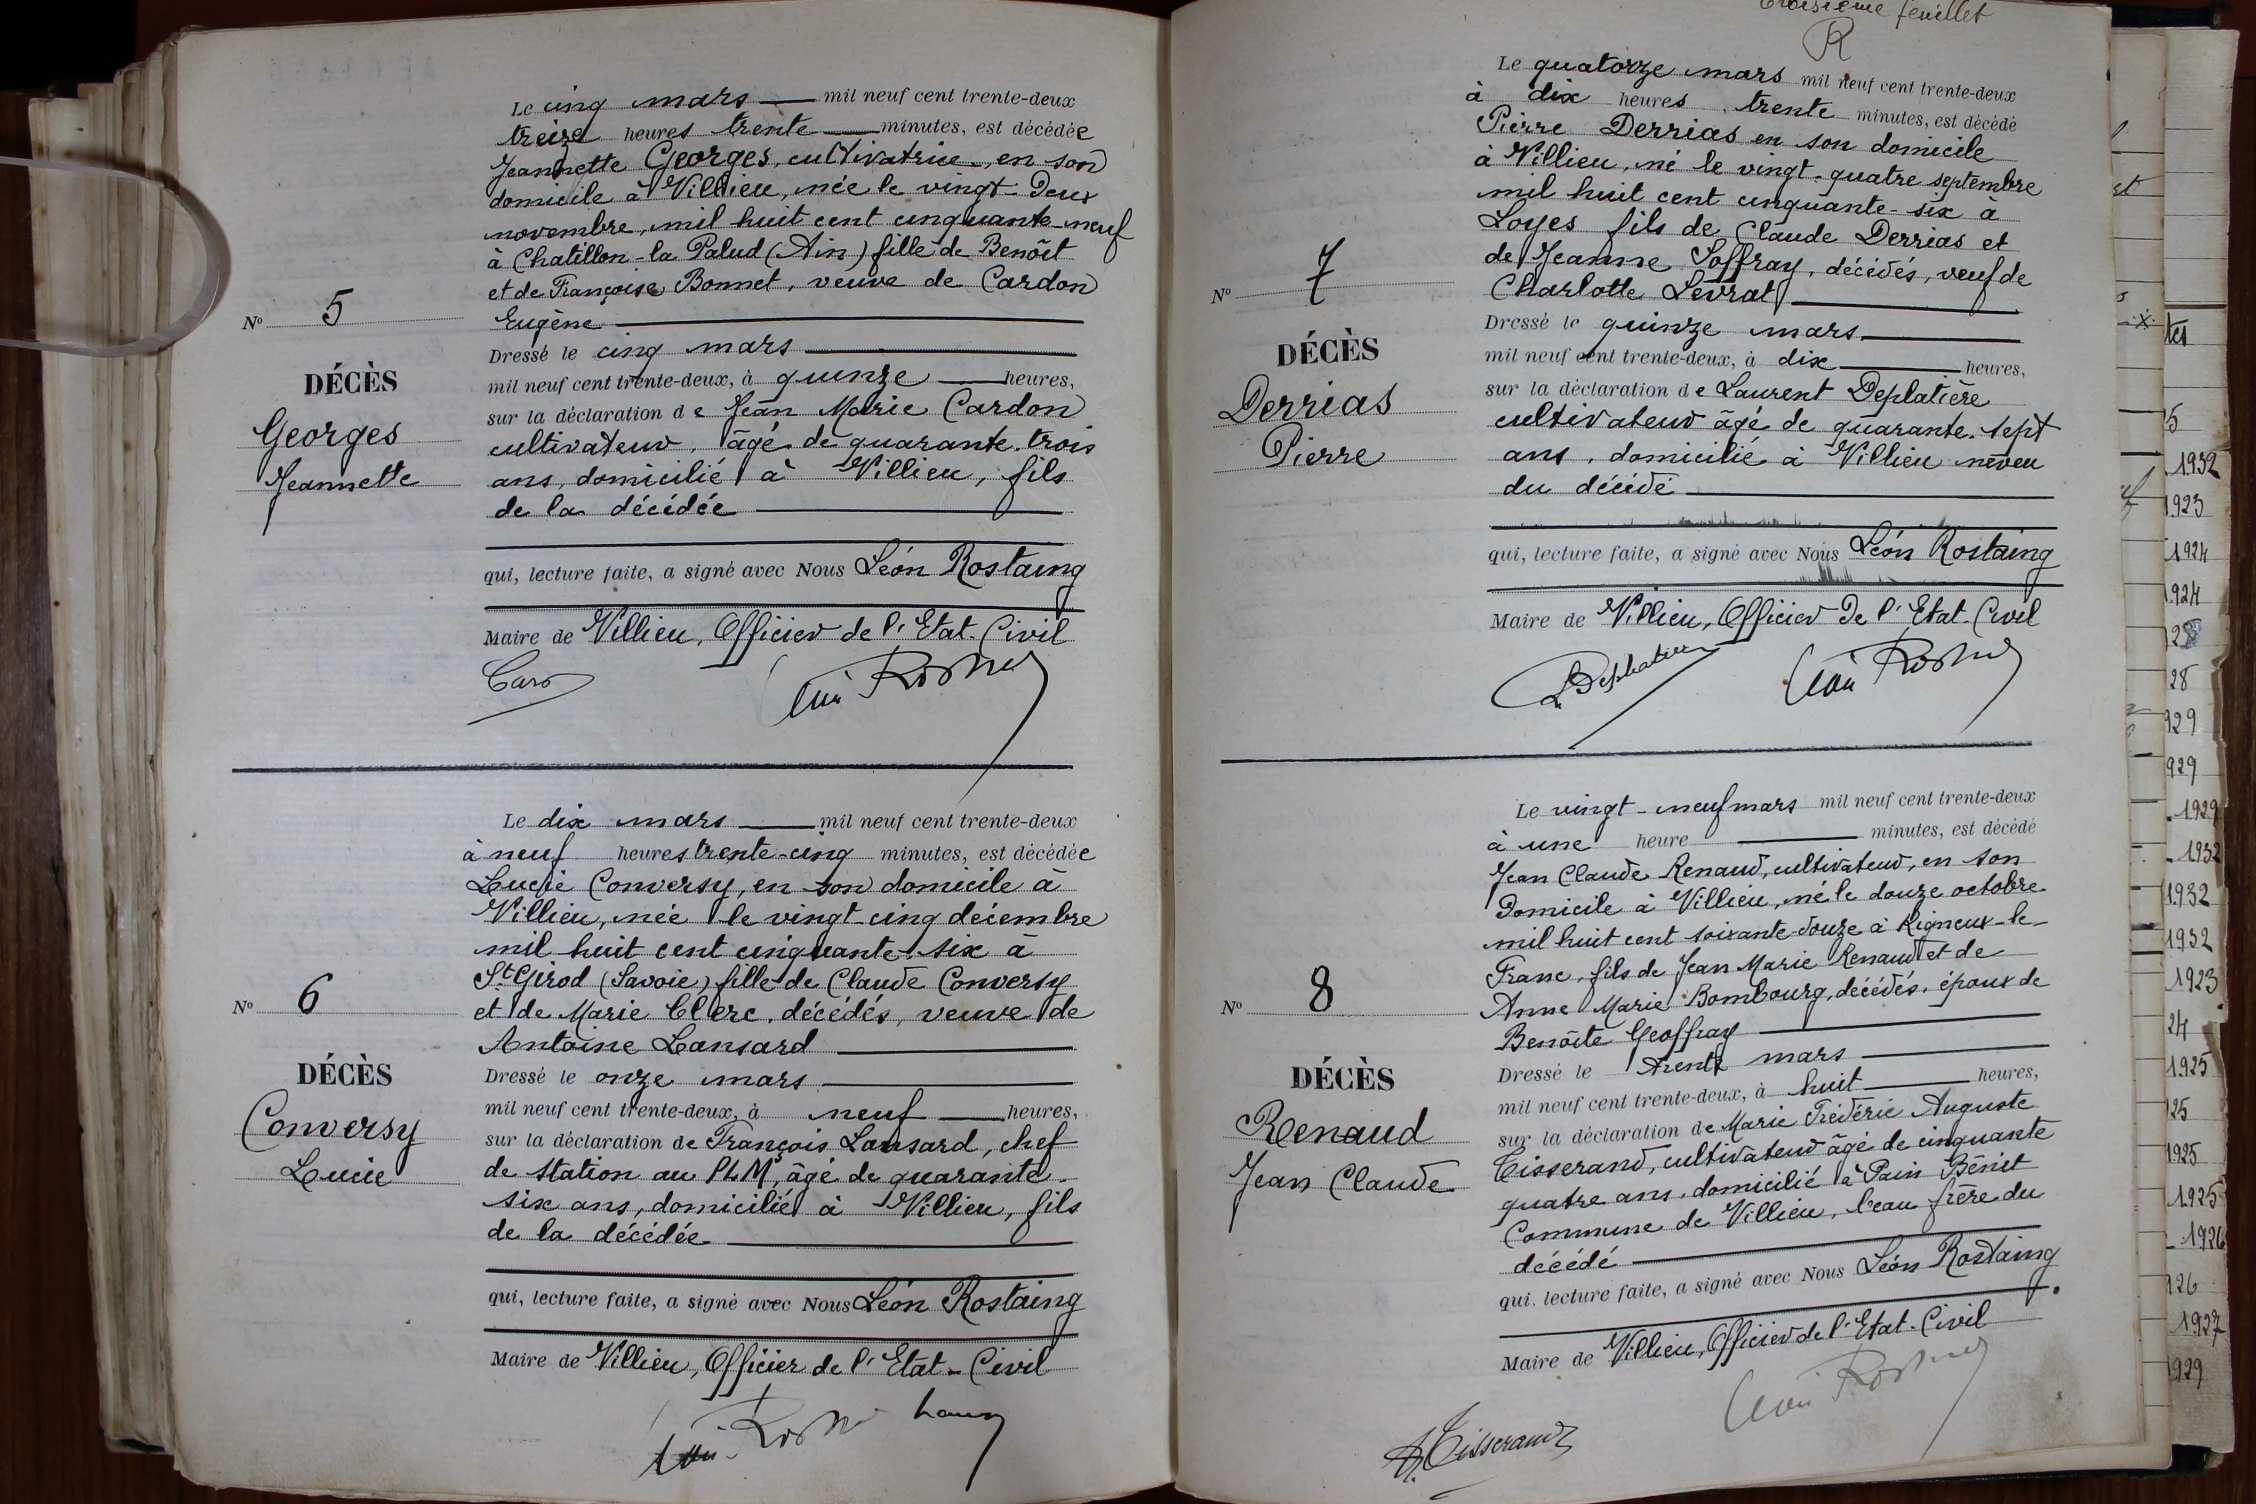 Le cinq mars mil neuf cent trente-deux
treize heures trente minutes, est décédée
Jeannette Georges, cultivatrice, en son
domicile à Villieu, née le vingt-deux
novembre, mil huit cent cinquante-neuf
à Chatillon-la Palud (Ain) fille de Benoît
et de Françoise Bonnet, veuve de Cardon
Eugène
Dressé le cinq mars
mil neuf cent trente-deux, à quinze heures,
sur la déclaration de Jean Marie Cardon
cultivateur, âgé de quarante-trois
ans, domicilié à Villieu, fils
de la décédée
qui, lecture faite, a signé avec Nous Léon Rostaing
Maire de Villieu, Officier de l'Etat-Civil
No 5
DÉCÈS
Georges
Jeannette
Le dix mars mil neuf cent trente-deux
à neuf heures trente-cinq minutes, est décédée
Lucie Conversy, en son domicile à
Villieu, née le vingt-cinq décembre
mil huit cent cinquante-six à
St Girod (Savoie) fille de Claude Conversy
et de Marie Clerc, décédés, veuve de
Antoine Lansard
Dressé le onze mars
mil neuf cent trente-deux, à neuf heures,
sur la déclaration de François Lansard, chef
de station au PLM, âgé de quarante-
six ans, domicilié à Villieu, fils
de la décédée
qui, lecture faite, a signé avec Nous Léon Rostaing
Maire de Villieu, Officier de l'Etat-Civil
No 6
DÉCÈS
Conversy
Lucie
Troisième feuillet
R
Le quatorze mars mil neuf cent trente-deux
à dix heures trente minutes, est décédé
Pierre Derrias en son domicile
à Villieu, né le vingt-quatre septembre
mil huit cent cinquante-six à
Loyes fils de Claude Derrias et
de Jeanne Soffray, décédés, veuf de
Charlotte Levrat
Dressé le quinze mars
mil neuf cent trente-deux, à dix heures,
sur la déclaration de Laurent Deplatière
cultivateur âgé de quarante-sept
ans, domicilié à Villieu neveu
du décédé
qui, lecture faite, a signé avec Nous Léon Rostaing
Maire de Villieu, Officier de l'Etat-Civil
No 7
DÉCÈS
Derrias
Pierre
Le vingt-neuf mars mil neuf cent trente-deux
à une heure minutes, est décédé
Jean Claude Renaud, cultivateur, en son
domicile à Villieu, né le douze octobre
mil huit cent soixante-douze à Rigneux-le-
Franc, fils de Jean Marie Renaud et de
Anne Marie Bombourg, décédés, époux de
Benoîte Geoffray
Dressé le trente mars
mil neuf cent trente-deux, à huit heures,
sur la déclaration de Marie Frédéric Auguste
Tisserand, cultivateur âgé de cinquante
quatre ans, domicilié à Pain Bénit
Commune de Villieu, beau frère du
décédé
qui, lecture faite, a signé avec Nous Léon Rostaing
Maire de Villieu, Officier de l'Etat-Civil
Tisserand
No 8
DÉCÈS
Renaud
Jean Claude
tes
1932
1923
1924
1924
28
929
929
1929
1932
1932
1932
1923
24
1925
25
1925
1925
1926
926
1927
1929